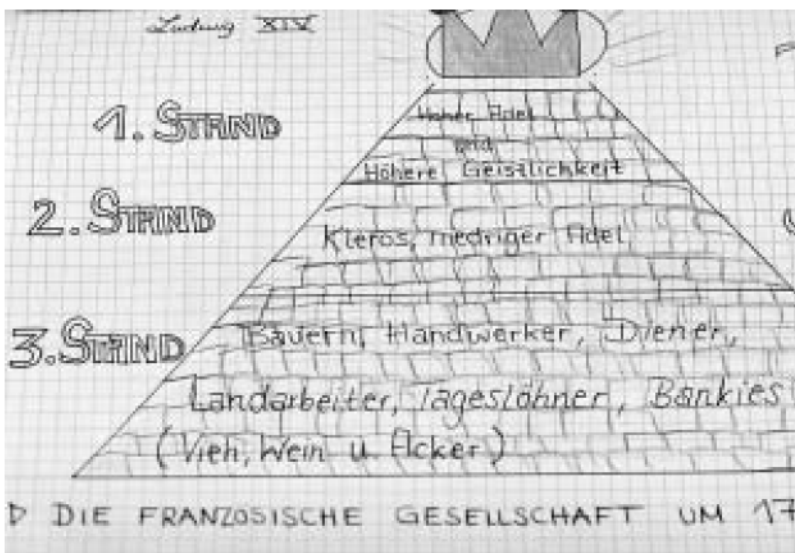 Ludwig XIV
1. STAND
Hoher Adel
und
Höhere Geistlichkeit
2. STAND
Kleros, niedriger Adel
3. STAND
Bauern, Handwerker, Diener,
Landarbeiter, Tageslöhner, Bankies
(Vieh, Wein u. Acker)
DIE FRANZÖSISCHE GESELLSCHAFT UM 17